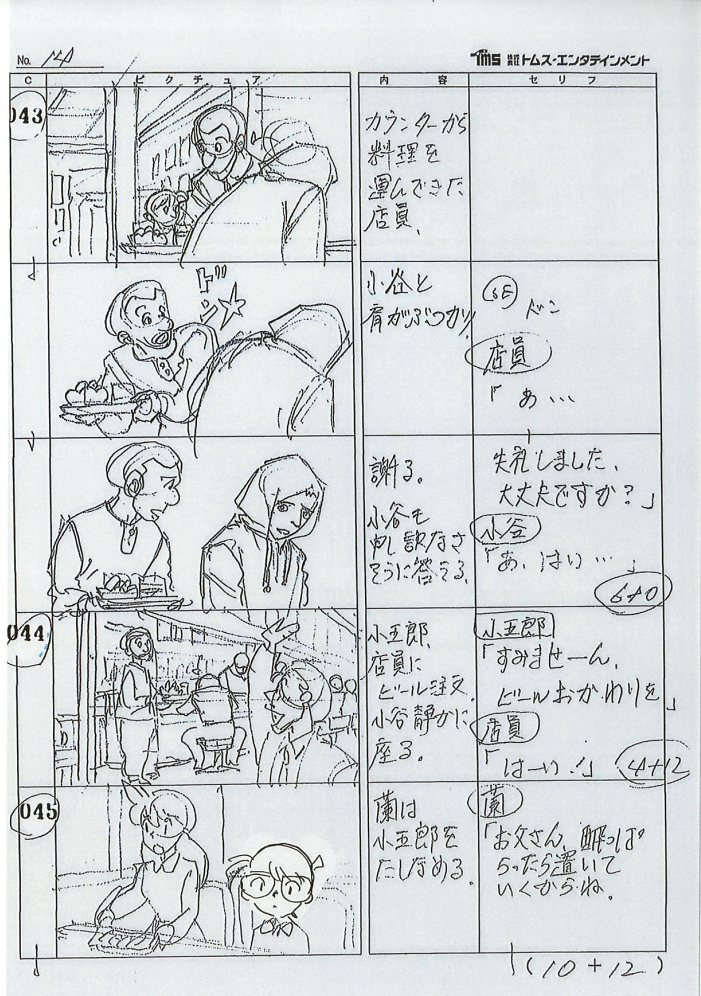 No. 14
TMS 株式会社 トムス・エンタテインメント
C ピクチュア 内容 セリフ
043
カウンターから
料理を
運んできた
店員、
ドン
小谷と
肩がぶつかり、
SE
ドン
店員
「あ…
謝る。
小谷も
申し訳なさ
そうに答える。
失礼しました、
大丈夫ですか?」
小谷
「あ、はい…」
6+0
044
小五郎、
店員に
ビール注文
小谷静かに
座る。
小五郎
「すみませーん、
ビールおかわりを」
店員
「はーい!」
4+12
045
蘭は
小五郎を
たしなめる。
蘭
「お父さん、酔っぱ
らったら置いて
いくからね。
(10+12)